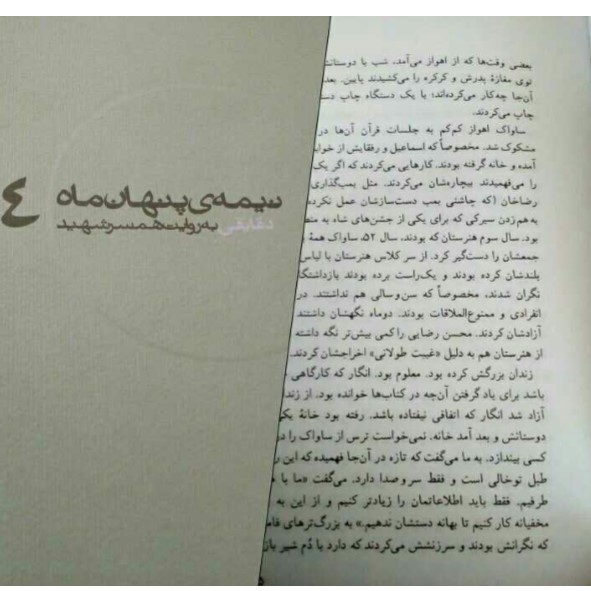 نیمه‌ی پنهان ماه
٤
دقایقی
به روایت همسر شهید
بعضی وقت‌ها که از اهواز می‌آمد، شب با دوستانش
توی مغازهٔ پدرش و کرکره را می‌کشیدند پایین. بعد
آن‌جا چه‌کار می‌کرده‌اند؛ با یک دستگاه چاپ
چاپ می‌کردند.
ساواک اهواز کم‌کم به جلسات قرآن آن‌ها در
مشکوک شد. مخصوصاً که اسماعیل و رفقایش از
آمده و خانه گرفته بودند. کارهایی می‌کردند که اگر یک
را می‌فهمیدند بیچاره‌شان می‌کردند. مثل بمب‌گذاری
رضاخان (که چاشنی بمب دست‌سازشان عمل نکرده
به‌هم زدن سیرکی که برای یکی از جشن‌های شاه به
بود. سال سوم هنرستان که بودند، سال ۵۲، ساواک همهٔ
جمعشان را دست‌گیر کرد. از سر کلاس هنرستان با لباس
بلندشان کرده بودند و یک‌راست برده بودند بازداشتگاه
نگران شدند، مخصوصاً که سن‌وسالی هم نداشتند. در
انفرادی و ممنوع‌الملاقات بودند. دوماه نگهشان داشتند
آزادشان کردند. محسن رضایی را کمی بیش‌تر نگه داشته
از هنرستان هم به دلیل «غیبت طولانی» اخراجشان کردند.
زندان بزرگش کرده بود. معلوم بود. انگار که کارگاهی
باشد برای یاد گرفتن آن‌چه در کتاب‌ها خوانده بود. از
آزاد شد انگار که اتفاقی نیفتاده باشد. رفته بود خانهٔ
دوستانش و بعد آمد خانه. نمی‌خواست ترس از ساواک را
کسی بیندازد. به ما می‌گفت که تازه در آن‌جا فهمیده که این
طبل توخالی است و فقط سروصدا دارد. می‌گفت «ما با
طرفیم. فقط باید اطلاعاتمان را زیادتر کنیم و از این به
مخفیانه کار کنیم تا بهانه دستشان ندهیم.» به بزرگ‌ترهای
که نگرانش بودند و سرزنشش می‌کردند که دارد با دُم شیر